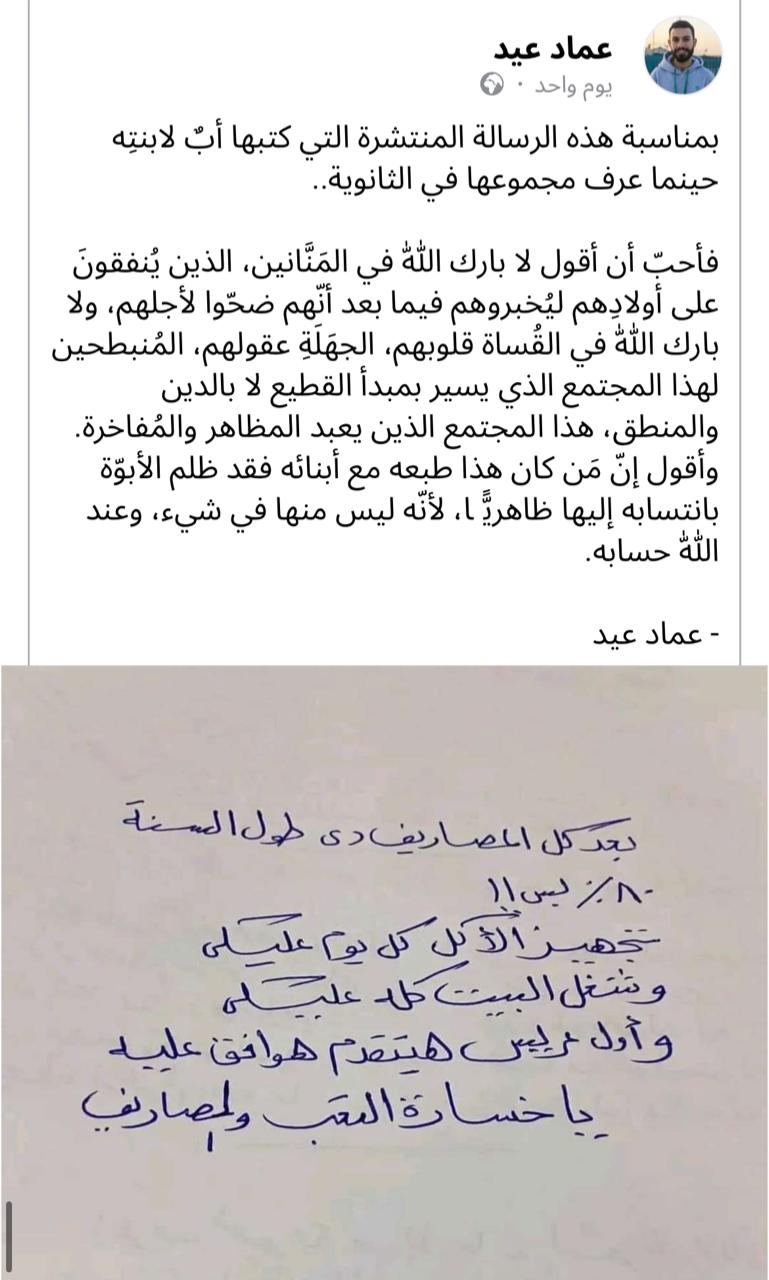 عماد عيد
يوم واحد ·
بمناسبة هذه الرسالة المنتشرة التي كتبها أبٌ لابنتِه
حينما عرف مجموعها في الثانوية..
فأحبّ أن أقول لا بارك اللّٰه في المَنَّانين، الذين يُنفقونَ
على أولادِهم ليُخبروهم فيما بعد أنّهم ضحّوا لأجلهم، ولا
بارك اللّٰه في القُساة قلوبهم، الجهَلَةِ عقولهم، المُنبطحين
لهذا المجتمع الذي يسير بمبدأ القطيع لا بالدين
والمنطق، هذا المجتمع الذين يعبد المظاهر والمُفاخرة.
وأقول إنّ مَن كان هذا طبعه مع أبنائه فقد ظلم الأبوّة
بانتسابه إليها ظاهريًّ ا، لأنّه ليس منها في شيء، وعند
اللّٰه حسابه.
- عماد عيد
بعد كل المصاريف دى طول السنة
٨٠٪ بس!!
تجهيز الأكل كل يوم عليكى
وشغل البيت كله عليكى
وأول عريس هيتقدم هوافق عليه
يا خسارة التعب والمصاريف